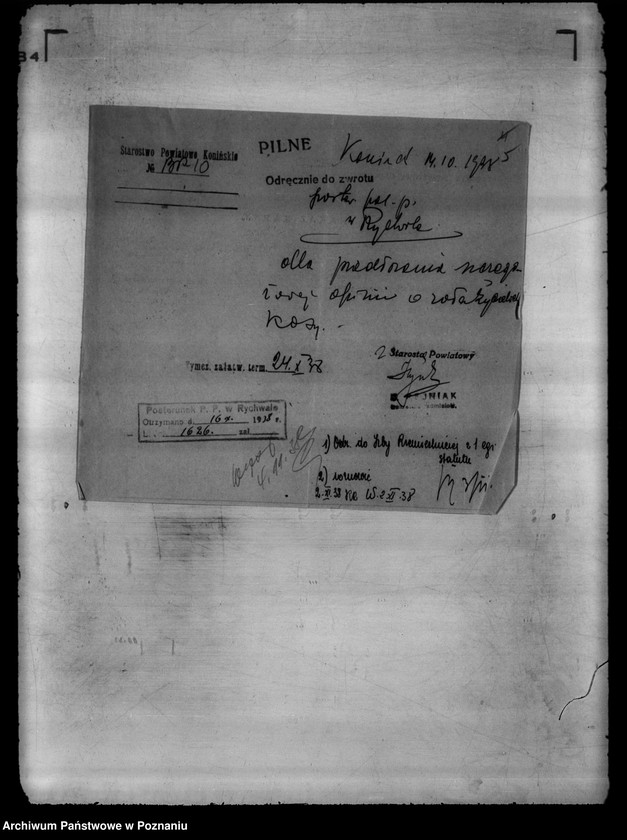 34
Starostwo Powiatowe Konińskie
№ BP 10
PILNE
Konin d 14.10. 1938
Odręcznie do zwrotu
poster. pol. p.
w Rychwale
dla przedłożenia szczegó
łowej opinii o założycielach
Kasy.
Tymcz. załatw. term. 24.X 38
Starosta Powiatowy
Posterunek P. P. w Rychwale
Otrzymano d. 16 X. 1938 r.
L. 1626. zał
1) Odr. do Izby Rzemieślniczej z 1 egz.
statutu
2) wznowić
2.XI.38
2.XI.38
Archiwum Państwowe w Poznaniu